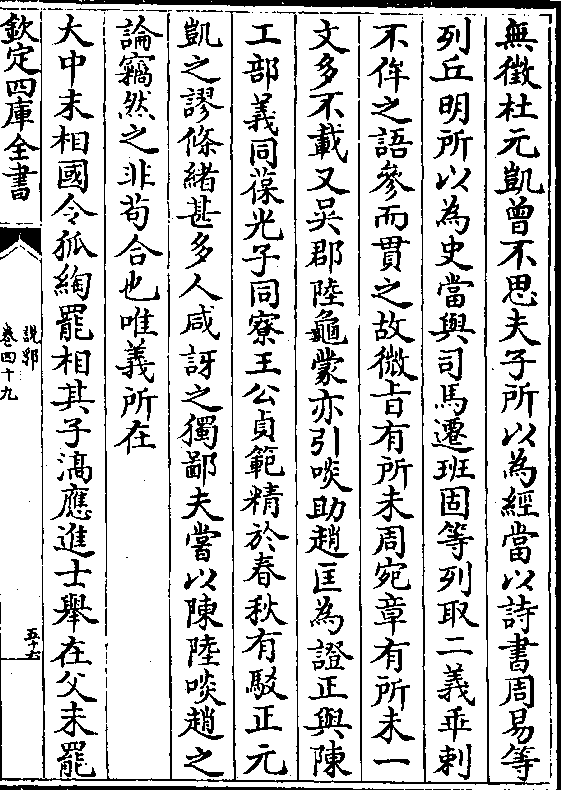 無徵杜元凱曾不思夫子所以為經當以詩書周易等
列丘明所以為史當與司馬遷班固等列取二義乖剌
不侔之語參而貫之故微㫖有所未周宛章有所未一
文多不載又吳郡陸龜蒙亦引啖助趙匡為證正與陳
工部義同葆光子同寮王公貞範精於春秋有駁正元
凱之謬條緒甚多人咸訝之獨鄙夫嘗以陳陸啖趙之
論竊然之非苟合也唯義所在
大中末相國令狐綯罷相其子滈應進士舉在父未罷
欽定四庫全書
說郛
卷四十九
五十六